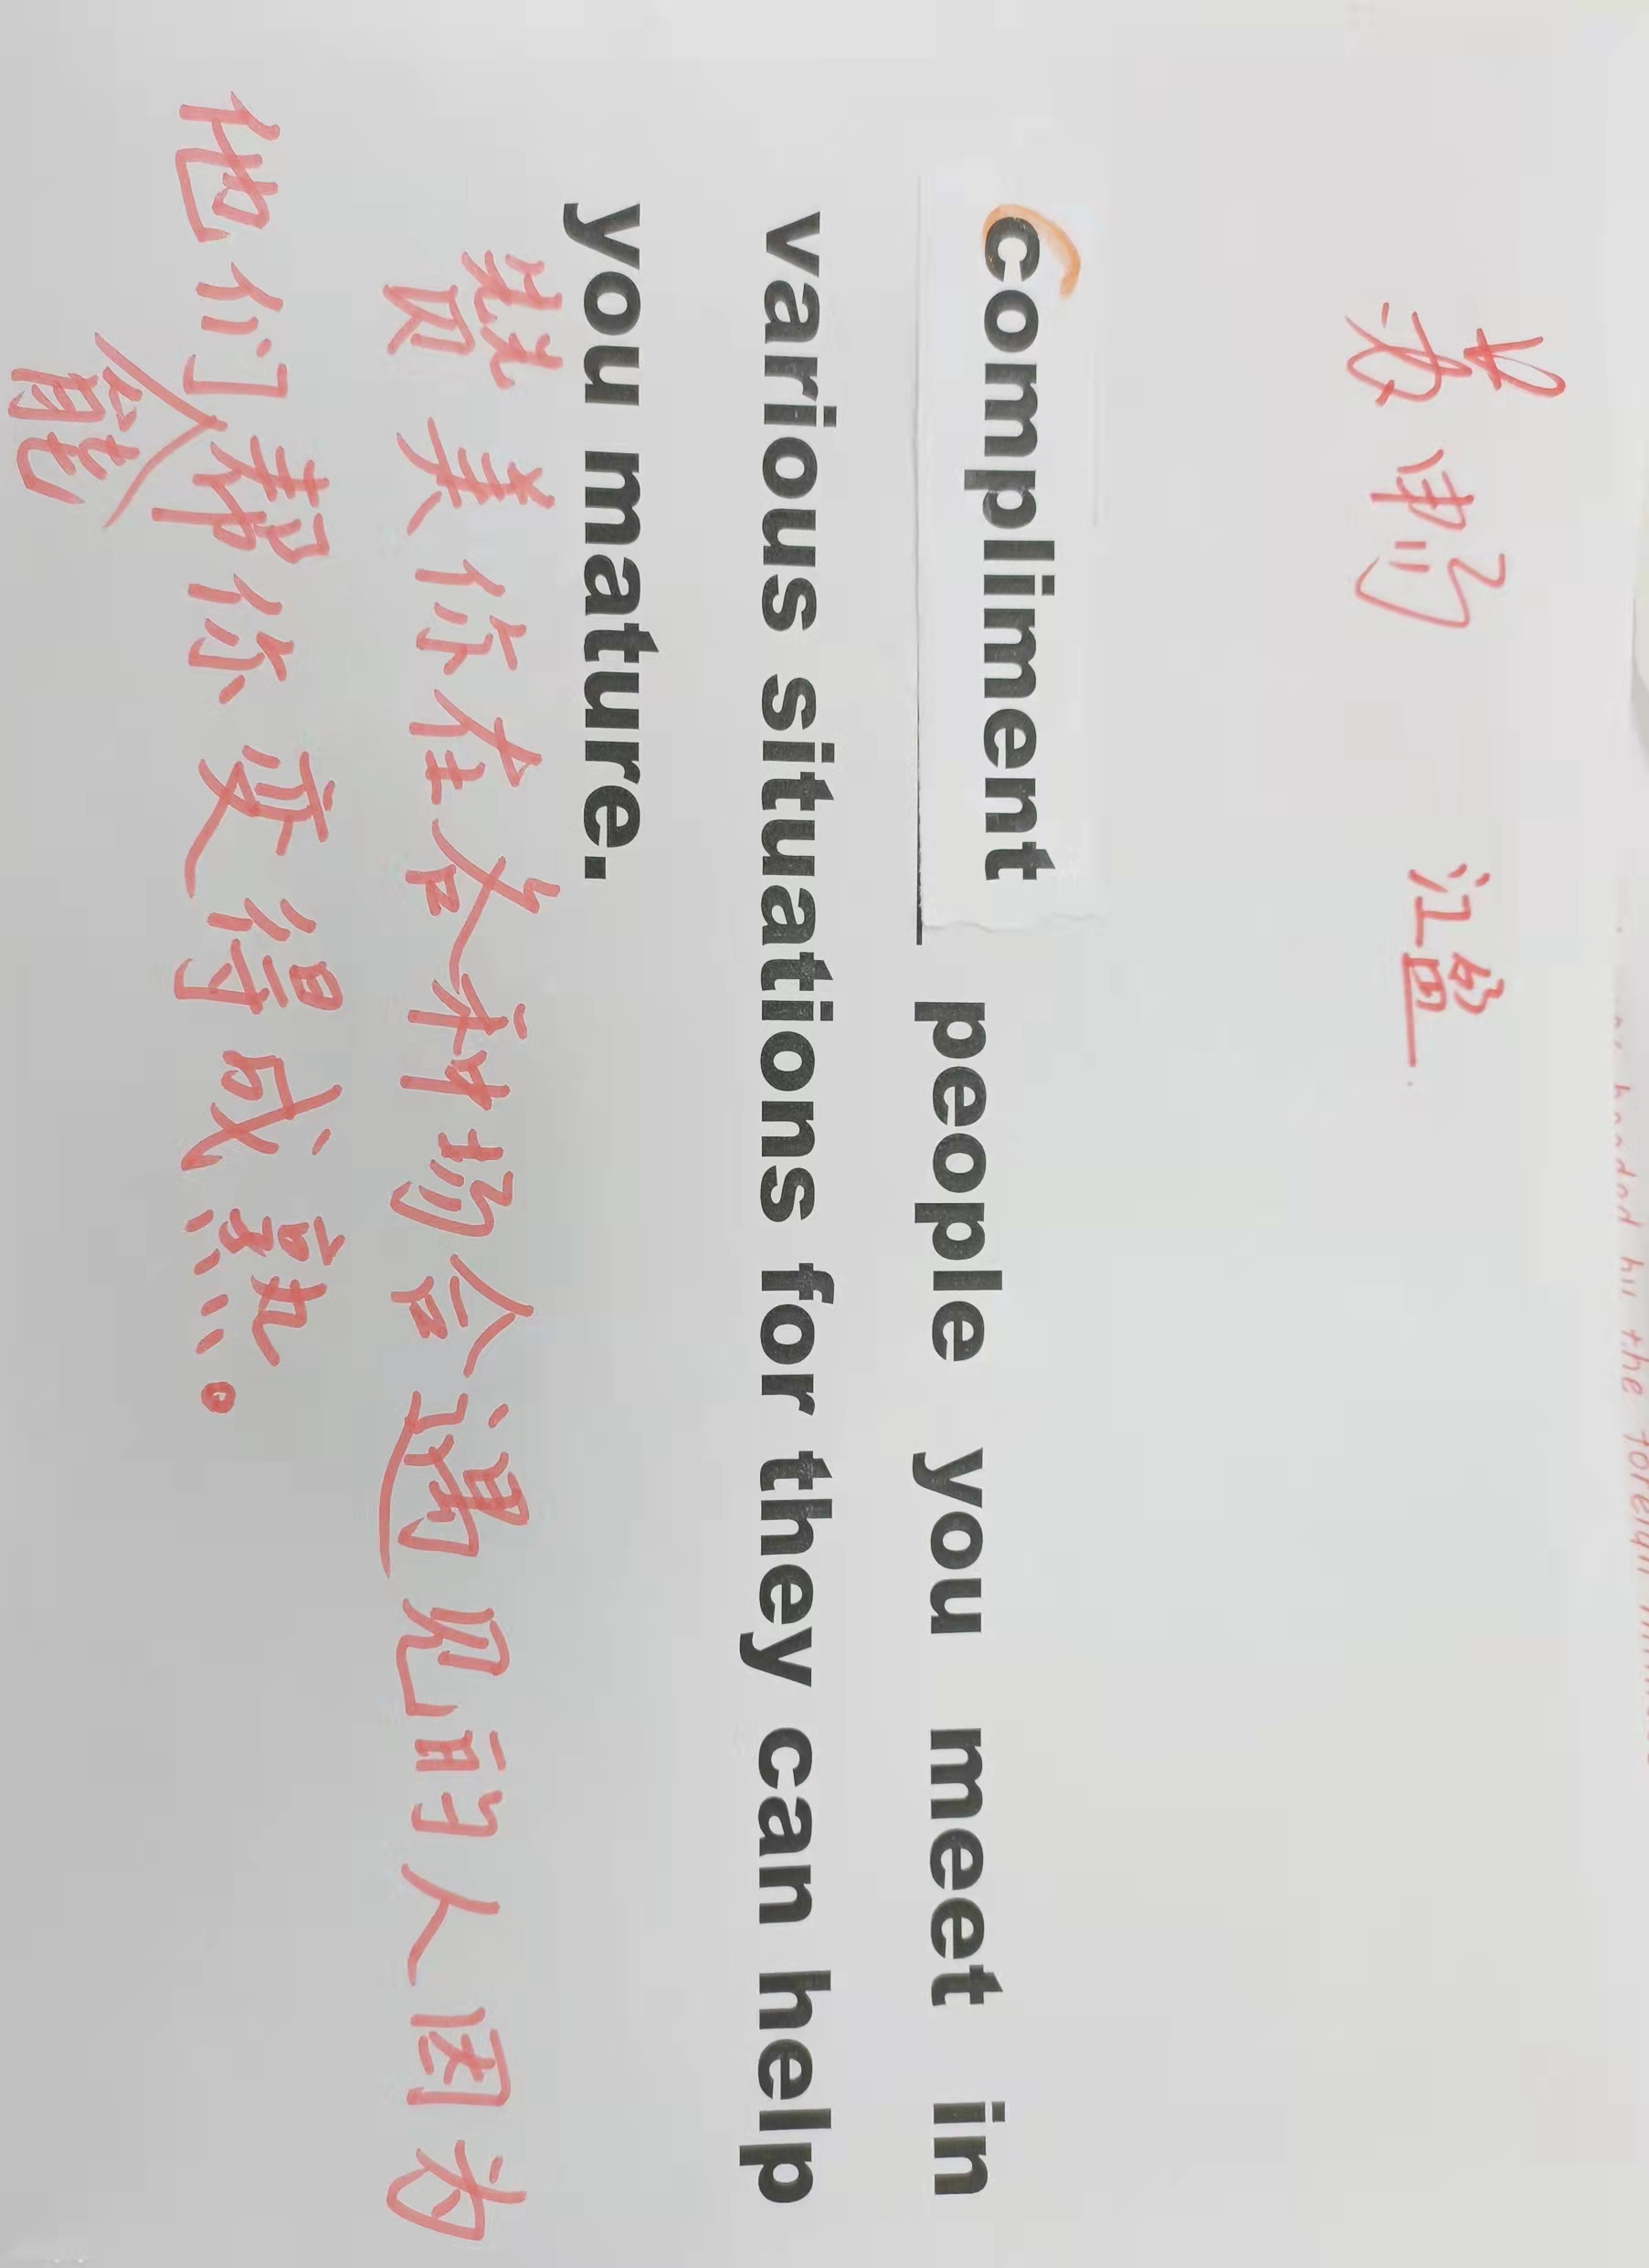 江盈
compliment people you meet in
various situations for they can help
you mature.
赞美你在各种场合遇见的人因为
他们能帮你变得成熟。